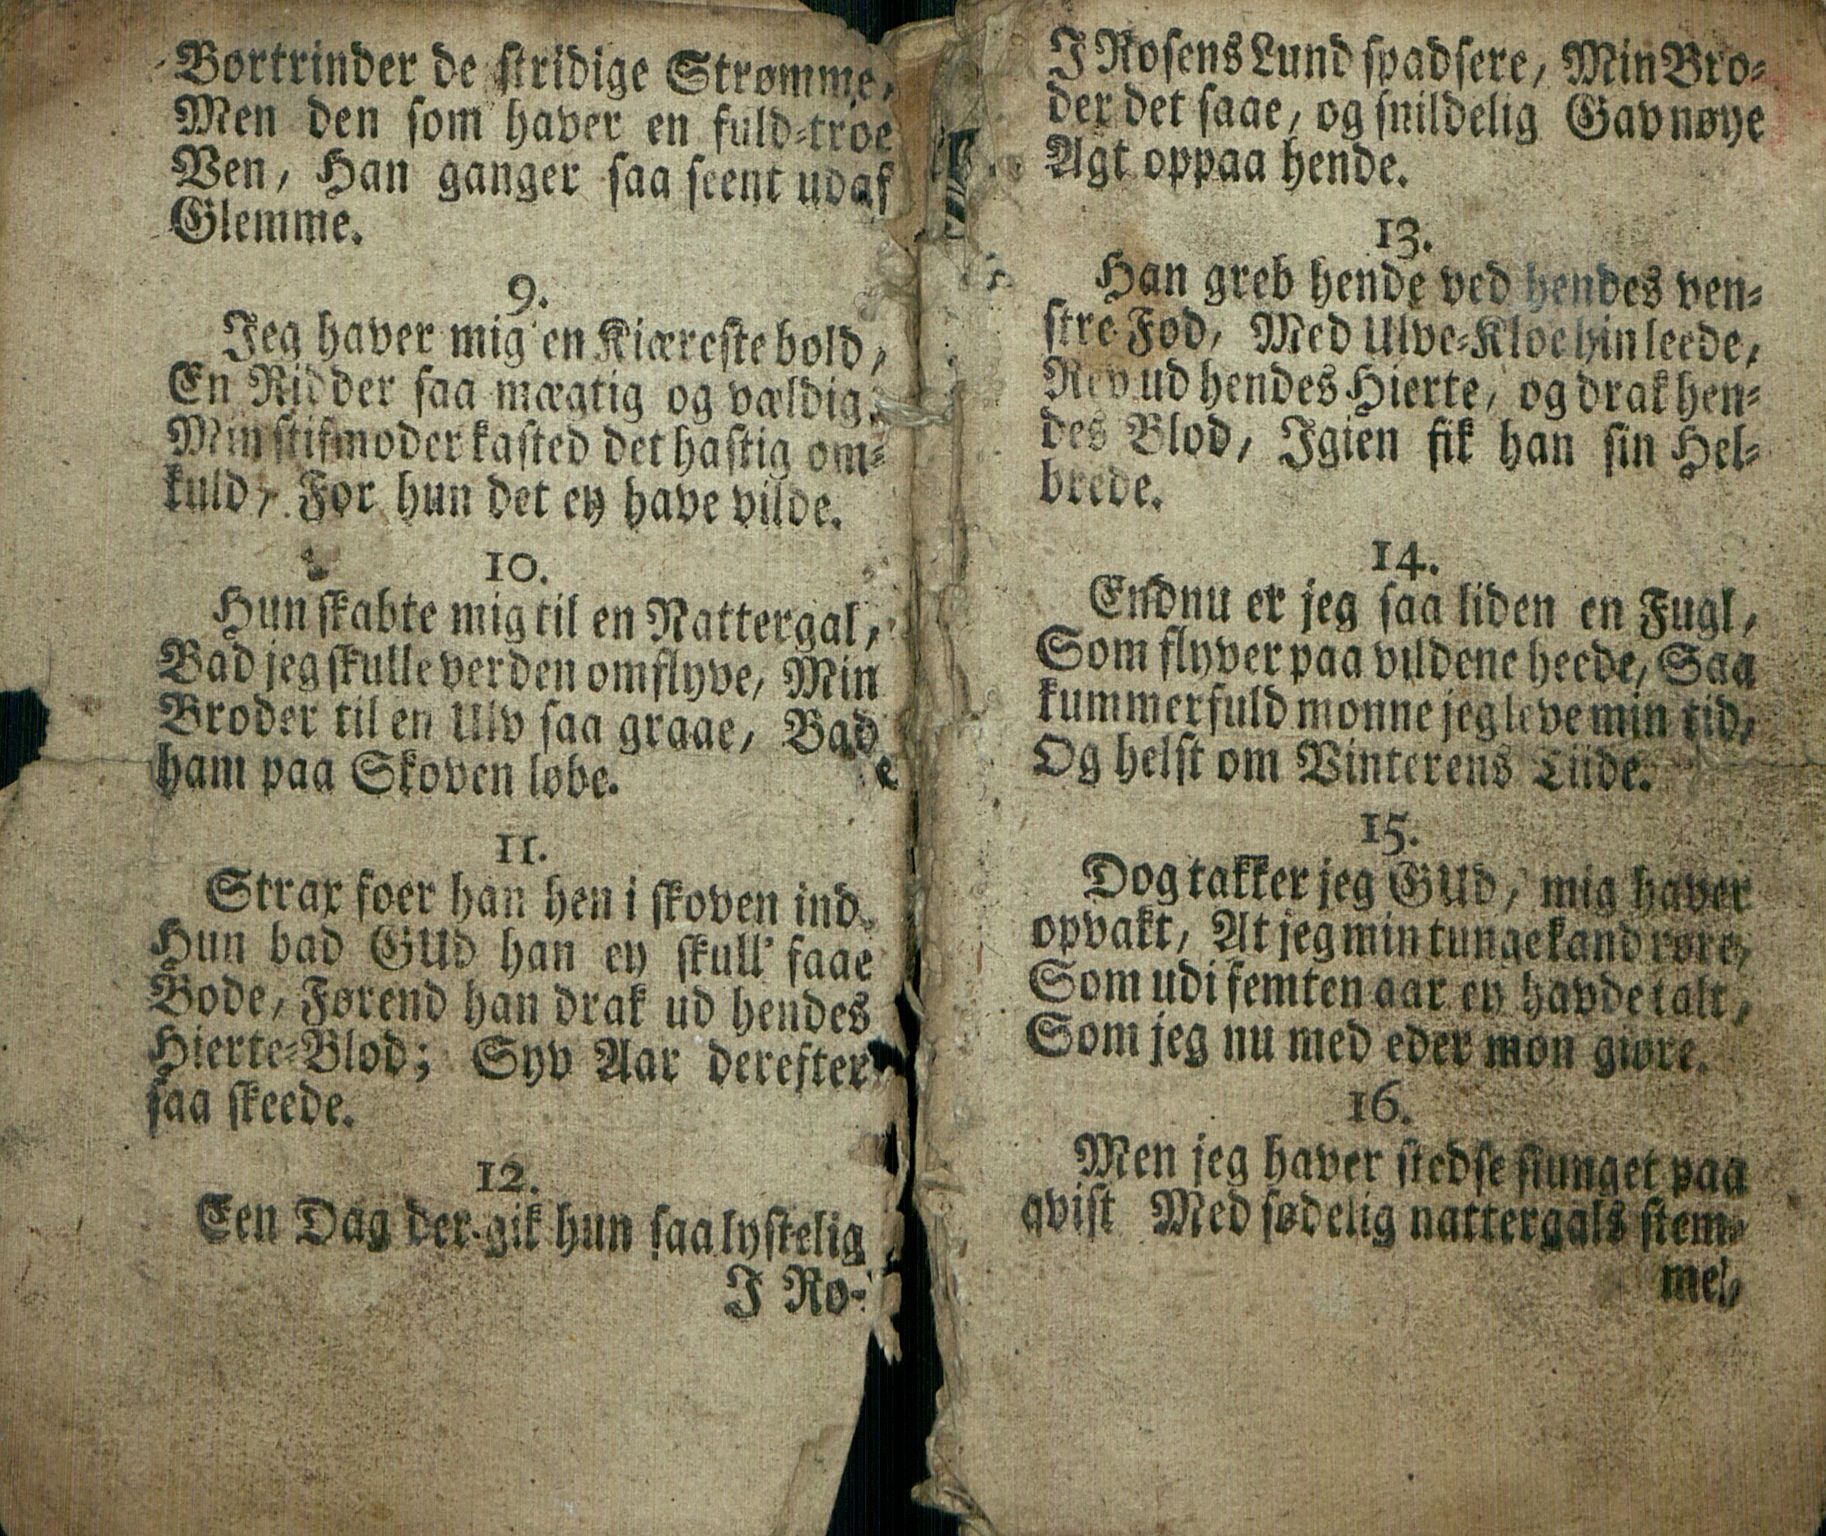 Bortrinder de stridige Strømme,
Men den som haver en fuld-troe
Ven, Han ganger saa seent udaf
Glemme.
9.
Jeg haver mig en Kiæreste bold,
En Ridder saa mægtig og vældig,
Min stifmoder kasted det hastig om-
kuld, For hun det ey have vilde.
10.
Hun skabte mig til en Nattergal,
Bad jeg skulle verden omflyve, Min
Broder til en Ulv saa graae, Bad
ham paa Skoven løbe.
11.
Strax foer han hen i skoven ind.
Hun bad GUd han ey skull' faae
Bode, Førend han drak ud hendes
Hierte-Blod; Syv Aar derefter
saa skeede.
12.
Een Dag der gik hun saa lystelig
I Ro-
I Rosens Lund spadsere, Min Bro-
der det saae, og snildelig Gav nøye
Agt oppaa hende.
13.
Han greb hende ved hendes ven-
stre Fod, Med Ulve-Kloe hin leede,
Rev ud hendes Hierte, og drak hen-
des Blod, Igien fik han sin Hel-
brede.
14.
Endnu er jeg saa liden en Fugl,
Som flyver paa vildene heede, Saa
kummerfuld monne jeg leve min tid,
Og helst om Vinterens Tiide.
15.
Dog takker jeg GUd, mig haver
opvakt, At jeg min tunge kand røre,
Som udi femten aar ey havde talt,
Som jeg nu med eder mon giøre.
16.
Men jeg haver stedse siunget paa
qvist Med sødelig nattergals stem-
me,